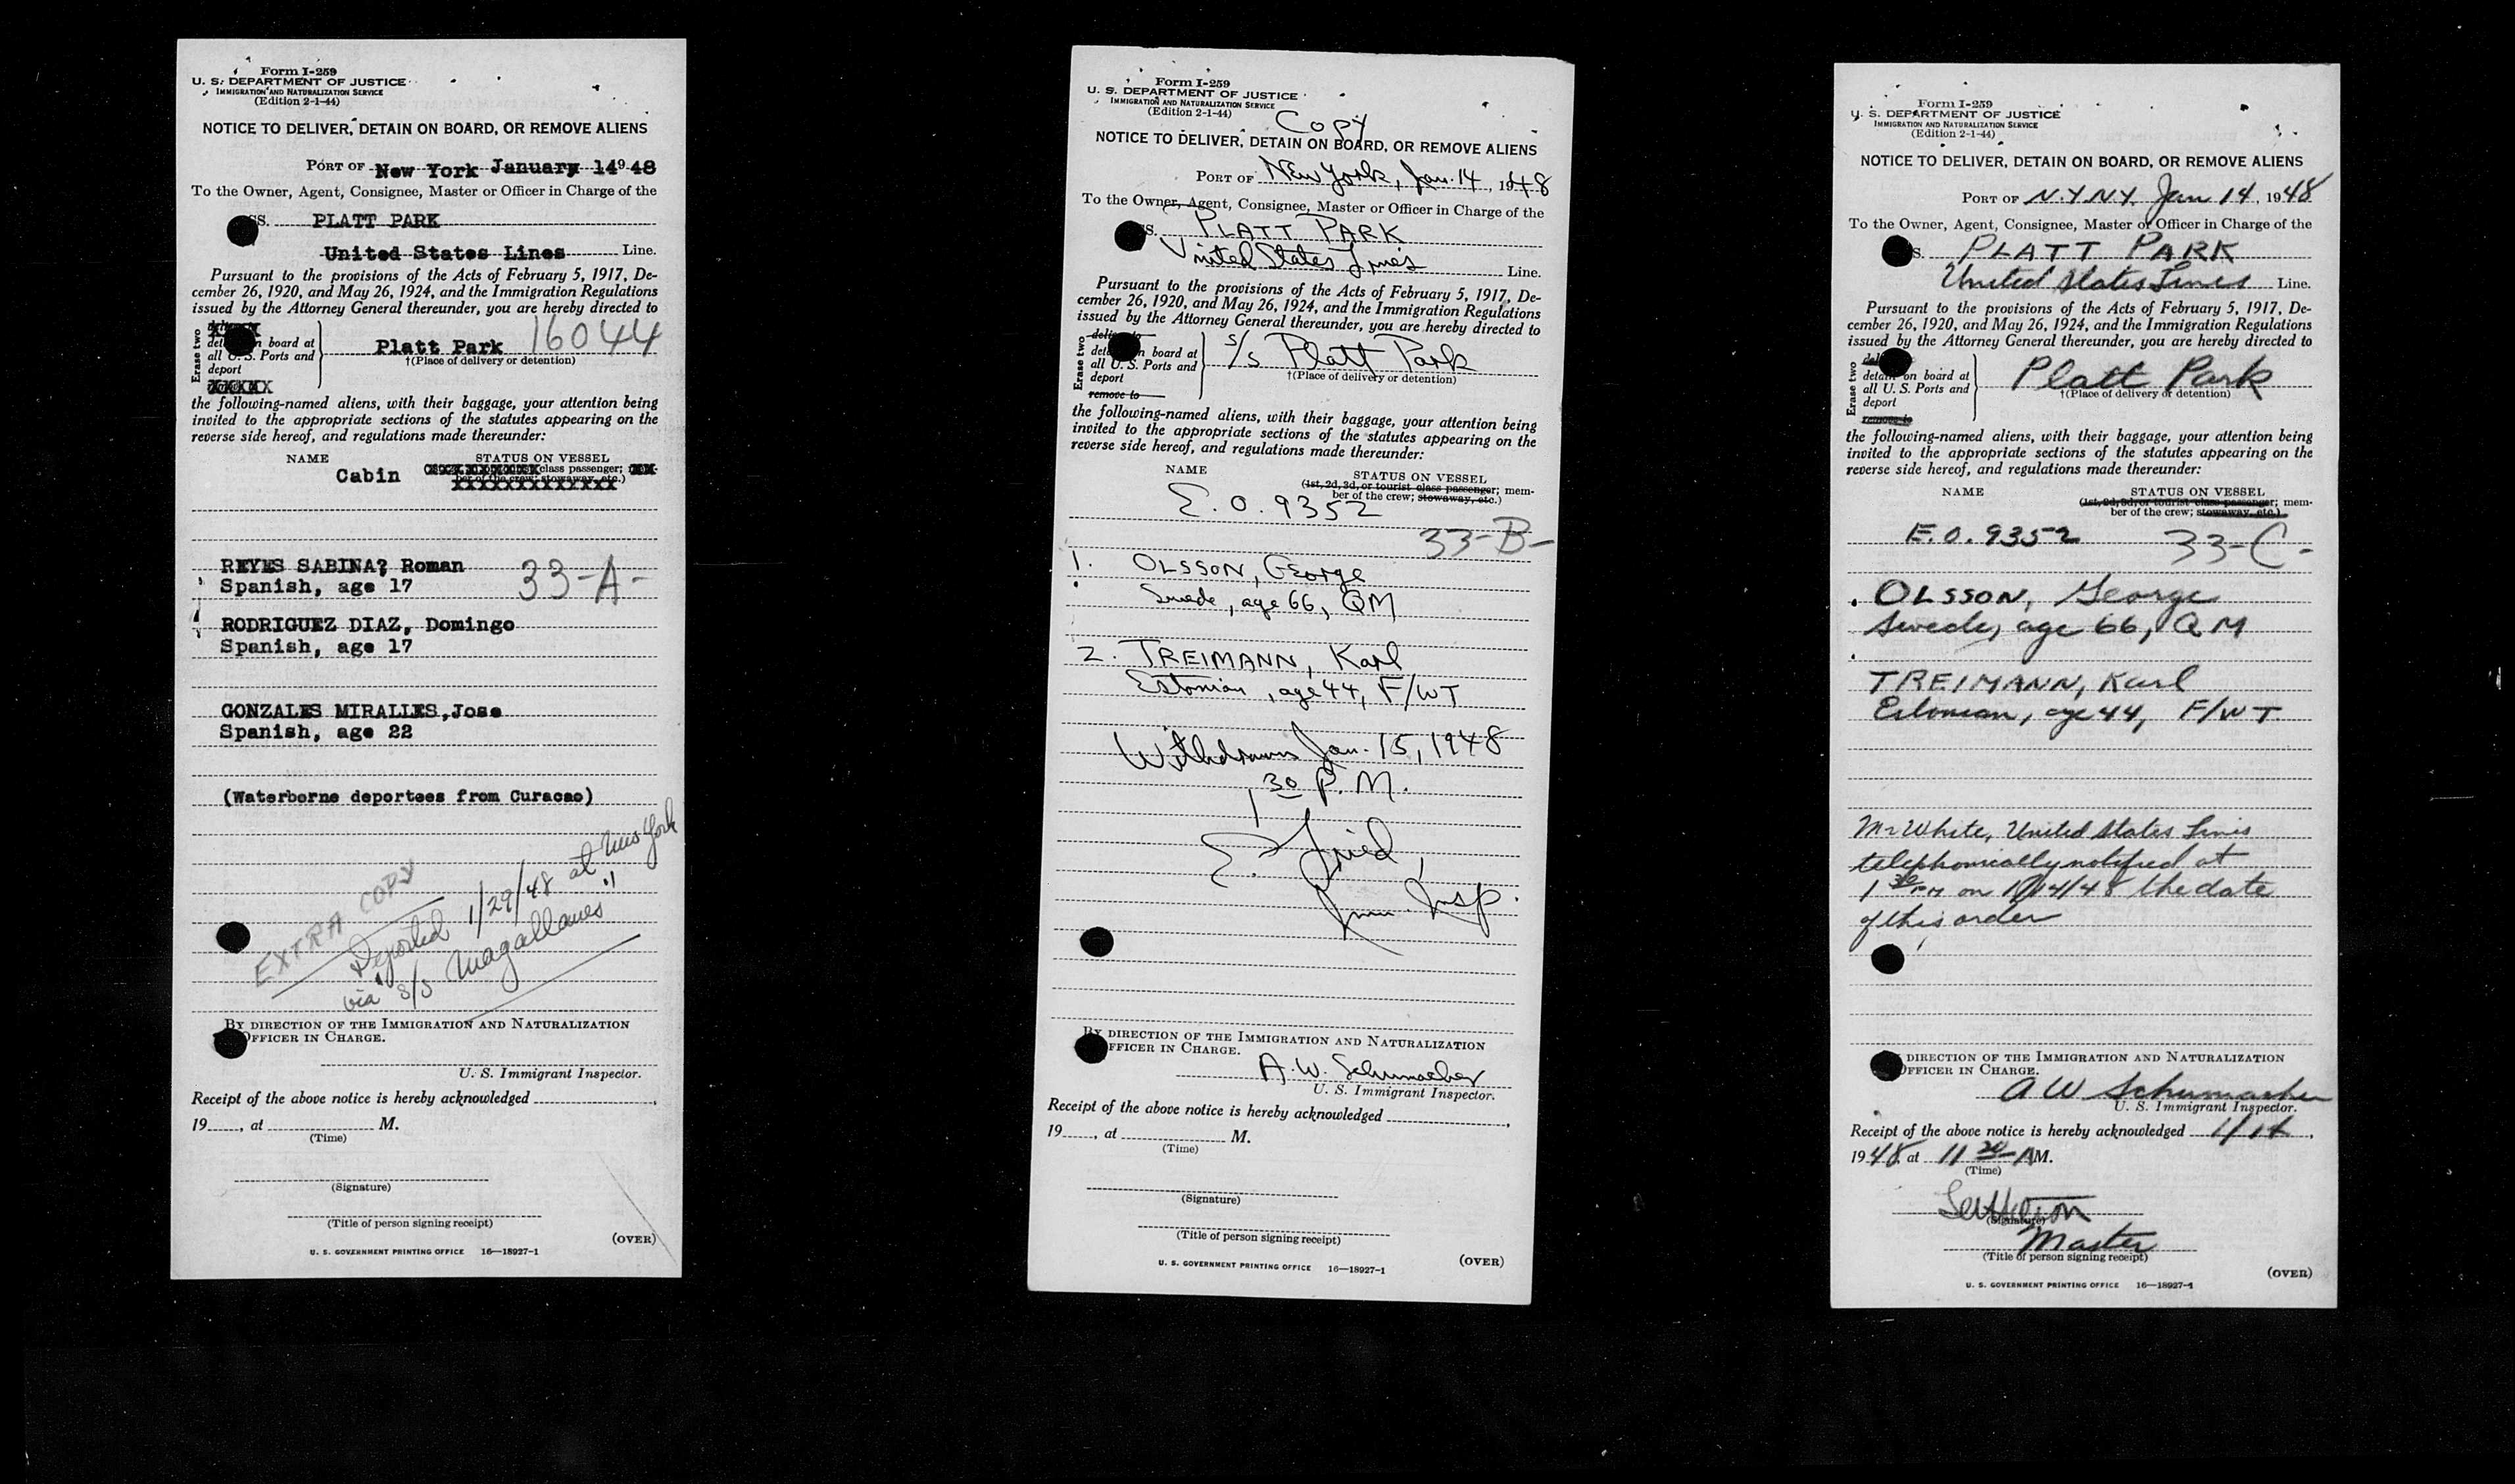 Form I-259
U. S. DEPARTMENT OF JUSTICE
IMMIGRATION AND NATURALIZATION SERVICE
(Edition 2-1-44)
NOTICE TO DELIVER, DETAIN ON BOARD, OR REMOVE ALIENS
PORT OF New York January 14 9 48
To the Owner, Agent, Consignee, Master or Officer in Charge of the
SS. PLATT PARK
United States Lines Line.
Pursuant to the provisions of the Acts of February 5, 1917, De-
cember 26, 1920, and May 26, 1924, and the Immigration Regulations
issued by the Attorney General thereunder, you are hereby directed to
Erase two
on board at
all U. S. Ports and
deport
Platt Park 16044
†(Place of delivery or detention)
the following-named aliens, with their baggage, your attention being
invited to the appropriate sections of the statutes appearing on the
reverse side hereof, and regulations made thereunder:
NAME STATUS ON VESSEL
Cabin class passenger;
ber of the crew; stowaway, etc.)
REYES SABINA? Roman
Spanish, age 17 33-A-
RODRIGUEZ DIAZ, Domingo
Spanish, age 17
GONZALES MIRALLES,Jose
Spanish, age 22
(Waterborne deportees from Curacao)
EXTRA COPY
Deported 1/29/48 at New York
via S/S Magallanes"
BY DIRECTION OF THE IMMIGRATION AND NATURALIZATION
OFFICER IN CHARGE.
U. S. Immigrant Inspector.
Receipt of the above notice is hereby acknowledged
19 , at M.
(Time)
(Signature)
(Title of person signing receipt)
(OVER)
U. S. GOVERNMENT PRINTING OFFICE 16—18927-1
Form I-259
U. S. DEPARTMENT OF JUSTICE
IMMIGRATION AND NATURALIZATION SERVICE
(Edition 2-1-44)
Copy
NOTICE TO DELIVER, DETAIN ON BOARD, OR REMOVE ALIENS
PORT OF New York, Jan. 14, 1948
To the Owner, Agent, Consignee, Master or Officer in Charge of the
S. PLATT PARK
United States Lines Line.
Pursuant to the provisions of the Acts of February 5, 1917, De-
cember 26, 1920, and May 26, 1924, and the Immigration Regulations
issued by the Attorney General thereunder, you are hereby directed to
Erase two
deliver to
detain on board at
all U. S. Ports and
deport
remove to
S/S Platt Park
†(Place of delivery or detention)
the following-named aliens, with their baggage, your attention being
invited to the appropriate sections of the statutes appearing on the
reverse side hereof, and regulations made thereunder:
NAME STATUS ON VESSEL
(1st, 2d, 3d, or tourist class passenger; mem-
ber of the crew; stowaway, etc.)
E.O. 9352
33-B-
1. OLSSON, George
Swede, age 66, QM
2. TREIMANN, Karl
Estonian, age 44, F/WT
Withdrawn Jan. 15, 1948
1 30 P.M.
E. Fried,
Imm. Insp.
BY DIRECTION OF THE IMMIGRATION AND NATURALIZATION
OFFICER IN CHARGE.
A. W. Schumacher
U. S. Immigrant Inspector.
Receipt of the above notice is hereby acknowledged
19 , at M.
(Time)
(Signature)
(Title of person signing receipt)
(OVER)
U. S. GOVERNMENT PRINTING OFFICE 16—18927-1
Form I-259
U. S. DEPARTMENT OF JUSTICE
IMMIGRATION AND NATURALIZATION SERVICE
(Edition 2-1-44)
NOTICE TO DELIVER, DETAIN ON BOARD, OR REMOVE ALIENS
PORT OF N.Y.N.Y. Jan 14, 1948
To the Owner, Agent, Consignee, Master or Officer in Charge of the
S. PLATT PARK
United States Lines Line.
Pursuant to the provisions of the Acts of February 5, 1917, De-
cember 26, 1920, and May 26, 1924, and the Immigration Regulations
issued by the Attorney General thereunder, you are hereby directed to
Erase two
detain on board at
all U. S. Ports and
deport
remove to
Platt Park
†(Place of delivery or detention)
the following-named aliens, with their baggage, your attention being
invited to the appropriate sections of the statutes appearing on the
reverse side hereof, and regulations made thereunder:
NAME STATUS ON VESSEL
(1st, 2d, 3d, or tourist class passenger; mem-
ber of the crew; stowaway, etc.)
E.O. 9352 33-C-
OLSSON, George
Swede, age 66, QM
TREIMANN, Karl
Estonian, age 44, F/WT
Mr White, United States Lines
telephonically notified at
1 30 PM on 1/14/48 the date
of this order
BY DIRECTION OF THE IMMIGRATION AND NATURALIZATION
OFFICER IN CHARGE.
A W Schumacher
U. S. Immigrant Inspector.
Receipt of the above notice is hereby acknowledged 1/14,
1948, at 11 30 AM.
(Time)
(Signature)
Master
(Title of person signing receipt)
(OVER)
U. S. GOVERNMENT PRINTING OFFICE 16—18927-1